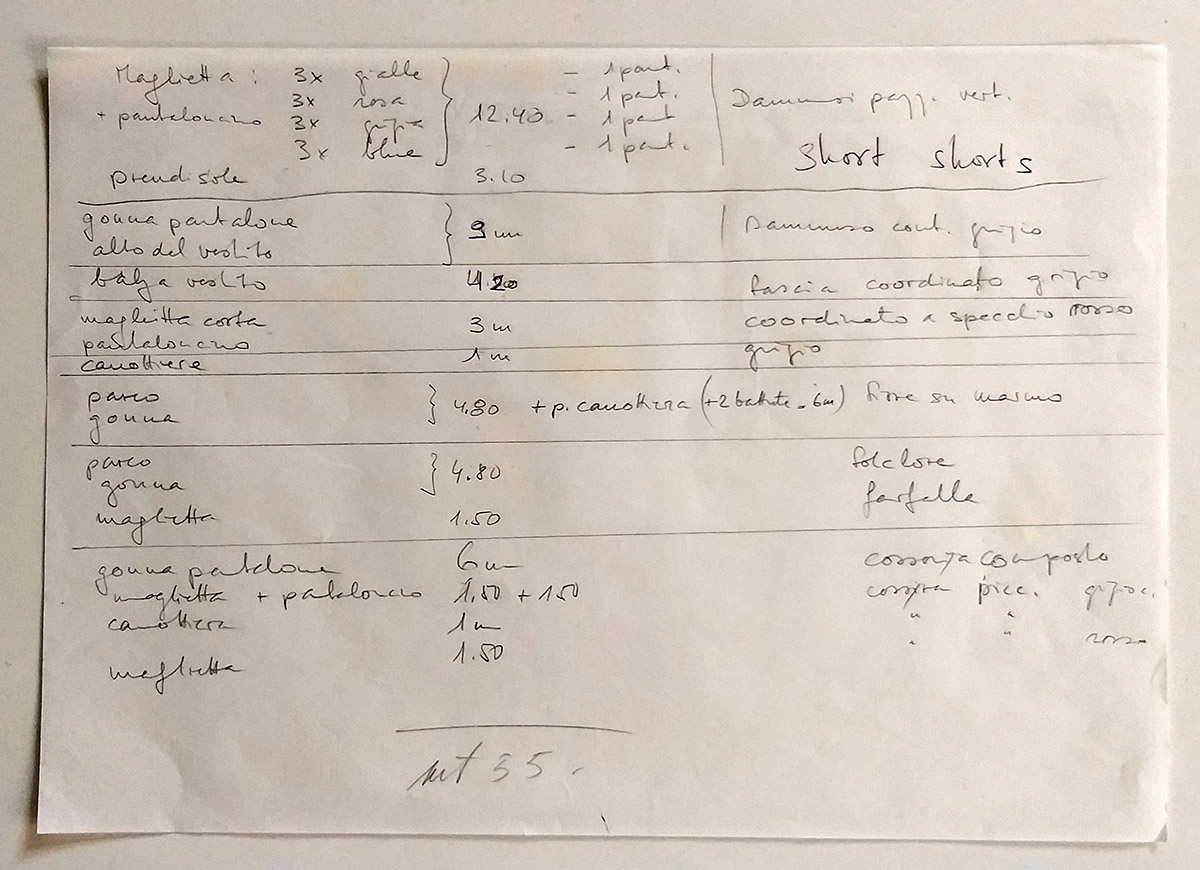 Maglietta: 3x gialle } - 1 pant.
3x rosa - 1 pant. Dammusi pazz. vert.
+ pantaloncino 3x grigia 12.40 - 1 pant
3x blue - 1 pant. short shorts
prendisole 3.10
gonna pantalone } 9 m Dammuso cont. grigio
alto del vestito
balza vestito 4.20 fascia coordinato grigio
maglietta corta 3 m coordinato a specchio rosso
pantaloncino
canottiera 1 m grigio
parco } 4.80 + p. canottiera (+2 battute - 6m) fiore su marmo
gonna
parco } 4.80 folclore
gonna farfalle
maglietta 1.50
gonna patalone 6 m composto
maglietta + pataloncino 1.50 + 150 picc. grigia.
canottiera 1 m " "
1.50 " " rosso
maglietta
mt 35.